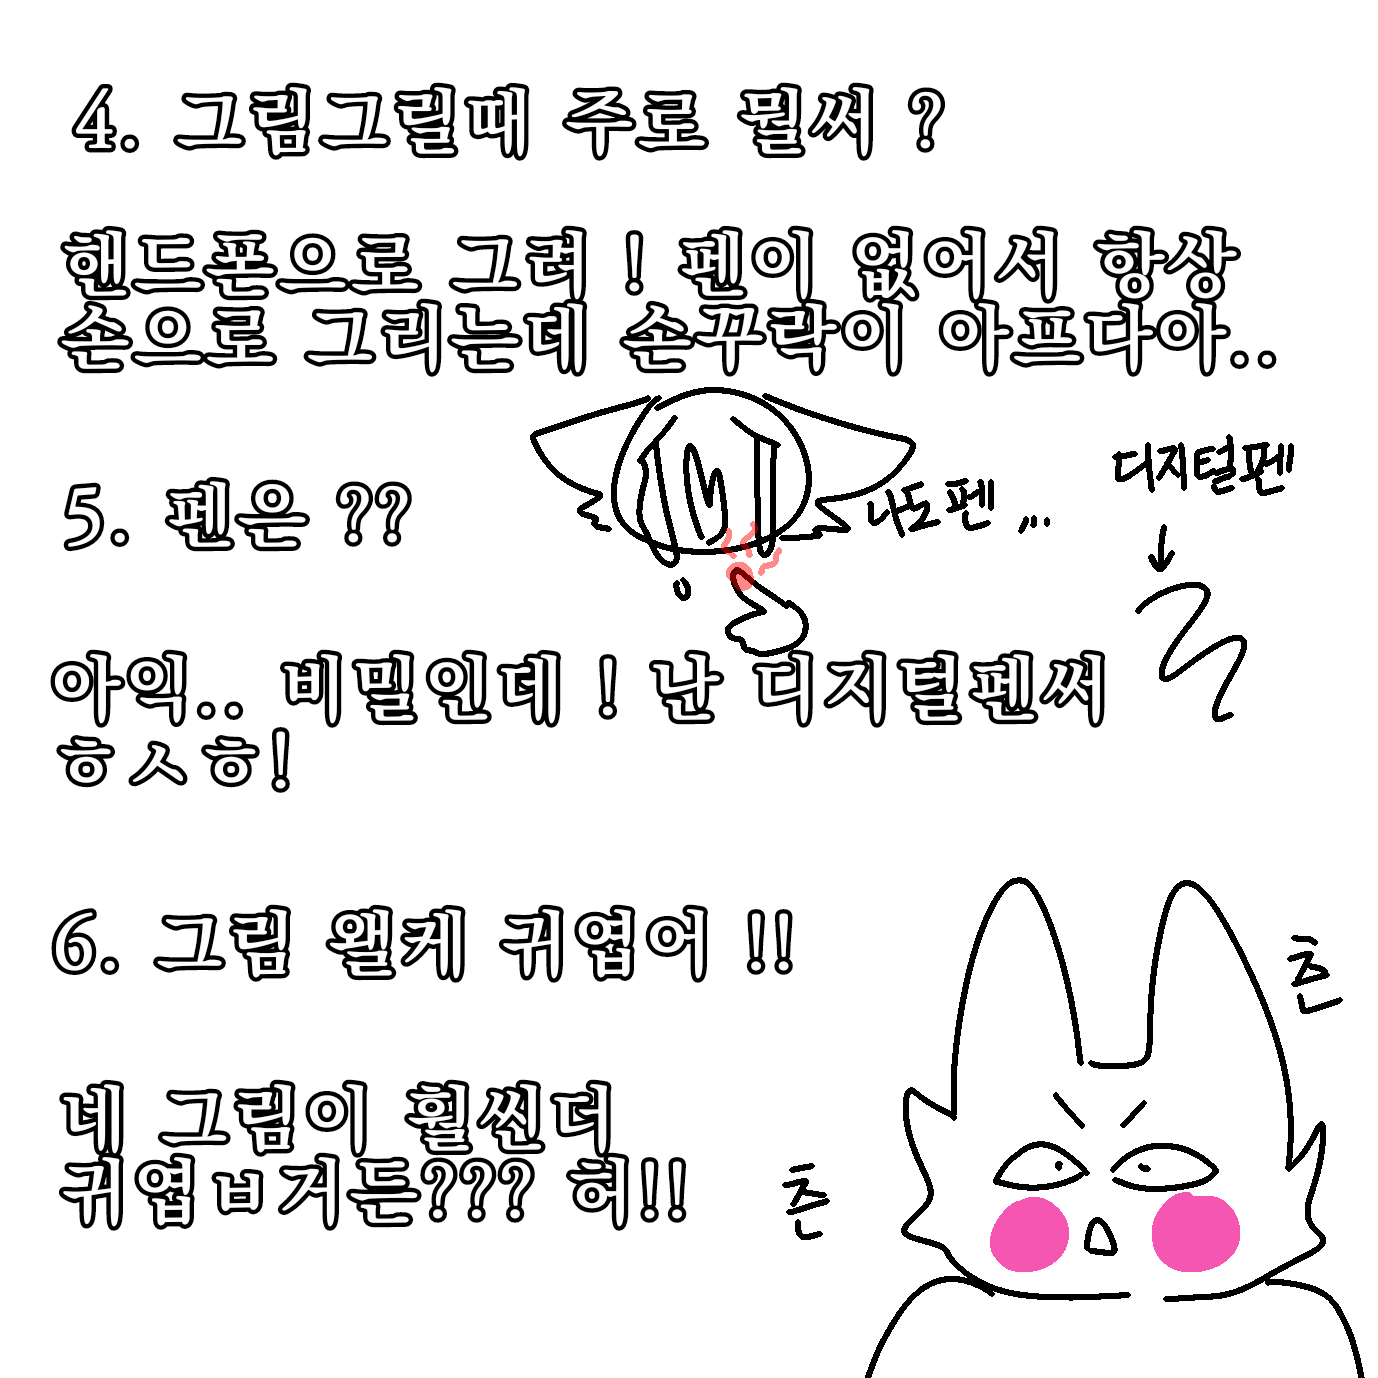 4. 그림그릴때 주로 뭘써 ?
핸드폰으로 그려 ! 펜이 없어서 항상
손으로 그리는데 손꾸락이 아프다아..
나도펜 ,,,
디지털펜
5. 펜은 ??
아익.. 비밀인데 ! 난 디지털펜써
ㅎㅅㅎ!
6. 그림 왤케 귀엽어 !!
츤
츤
네 그림이 훨씬더
귀엽ㅂ거든??? 허!!